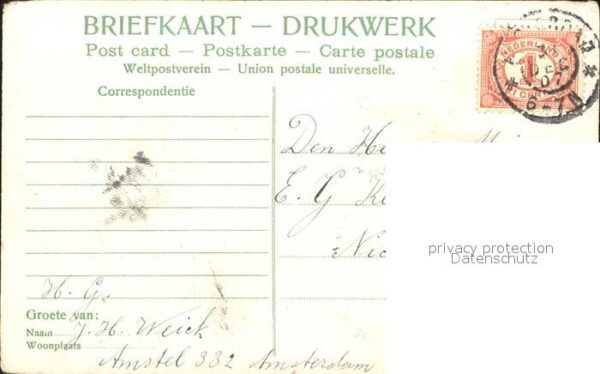 BRIEFKAART — DRUKWERK
Post card — Postkarte — Carte postale
Weltpostverein — Union postale universelle.
Correspondentie
NEDERLAND
1
CENT
6-7
Den He
E. G. Ke
Nie
privacy protection
Datenschutz
H. G.
Groete van:
Naam J. H. Weick
Woonplaats Amstel 332 Amsterdam